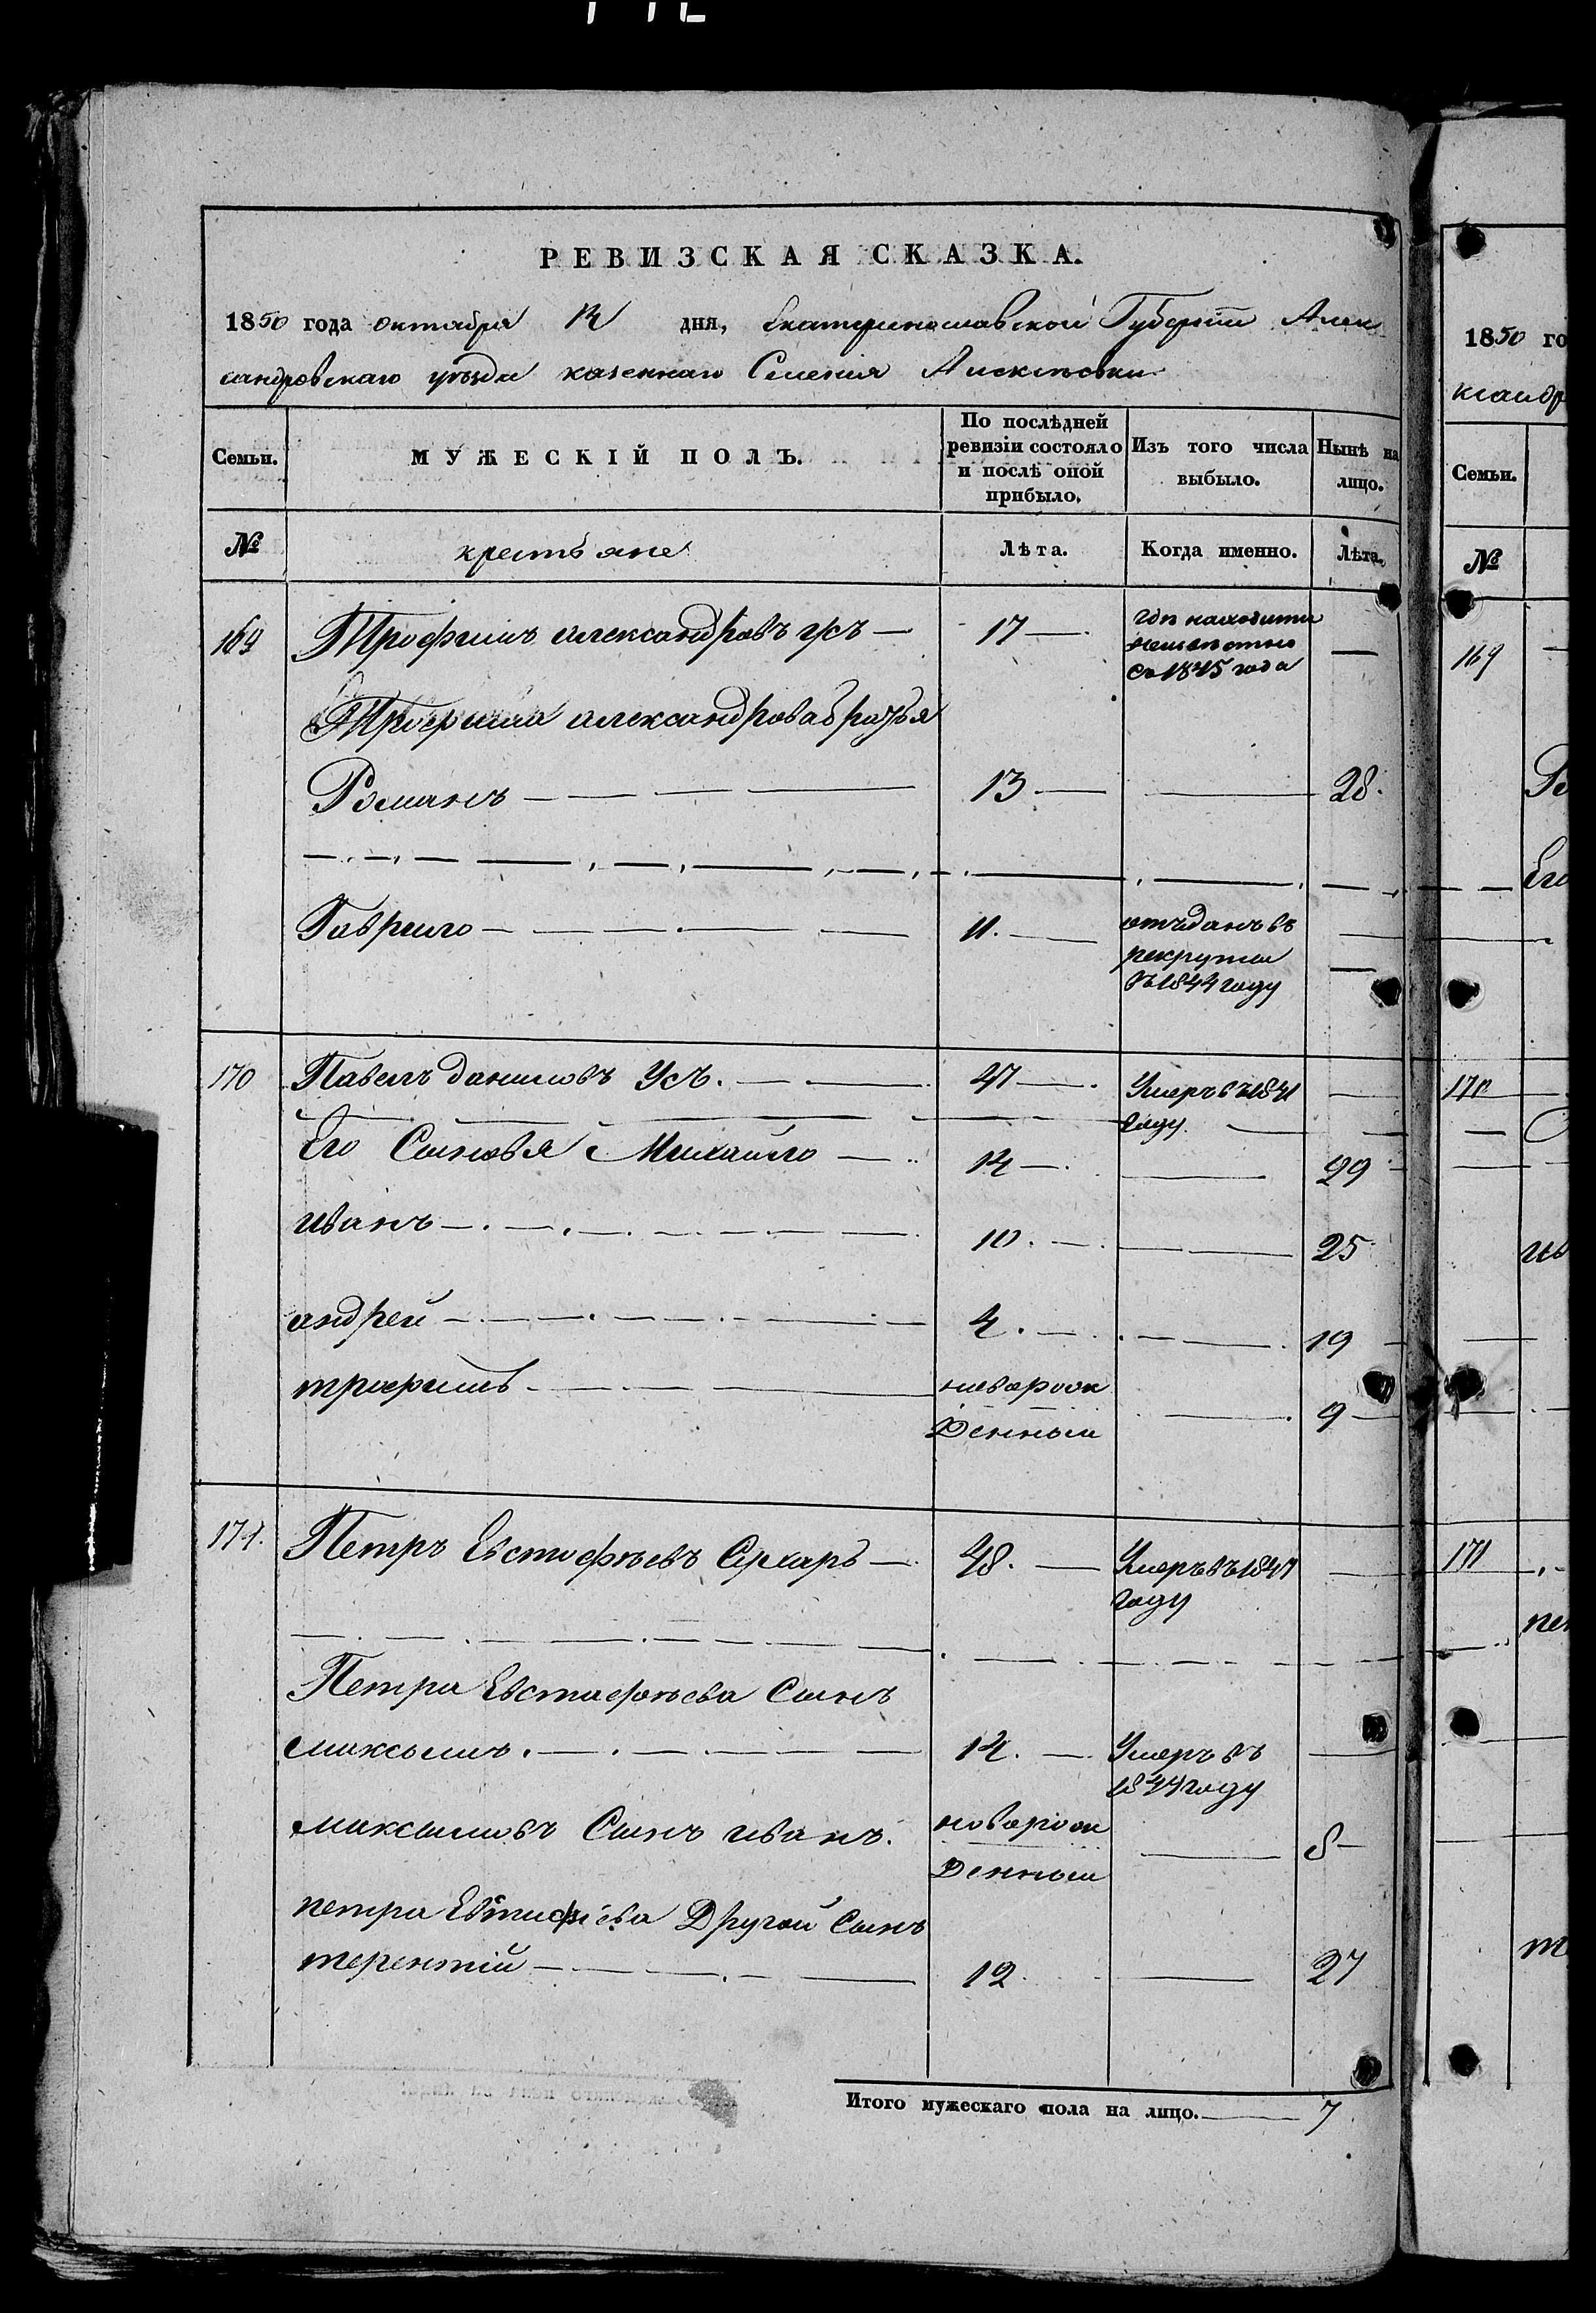 РЕВИЗСКАЯ СКАЗКА.
1850 года октября 12 дня, Екатеринославской Губернии Алек
сандровскаго уезда казеннаго Селения
Семьи.
МУЖЕСКІЙ ПОЛЪ.
По послѣдней ревизіи состояло и послѣ оной прибыло.
Изъ того числа выбыло.
Нынѣ на лицо.
№
крестьяне
Лѣта.
Когда именно.
Лѣта.
169 Трофимъ александровъ усъ — 17 — где находити
неизвестно
съ 1845 года —
Трофима александрова братья
Романъ — 13 — 28.
Гаврило — 11. — отъданъ въ
рекруты
въ 1844 году —
170 Павелъ даниловъ Усъ. — 47 — Умеръ въ 1841
году. —
Его Сыновья Михайло — 14 — 29
иванъ — 10. — 25
андрей — 4. — 19
трофимъ — новорож
денный — 9
171. Петръ Евстафѣевъ Сухарь — 48. — Умеръ въ 1847
году —
Петра Евстафѣева Сынъ
максымъ. — 14. — Умеръ въ
1844 году —
максимовъ Сынъ иванъ. новорож
денный — 8
петра Евстафіева Другой Сынъ
терентій — 12 — 27
Итого мужескаго пола на лицо. — 7
1850 го
ксандр
Семьи.
№
169
Его
170
ив
171